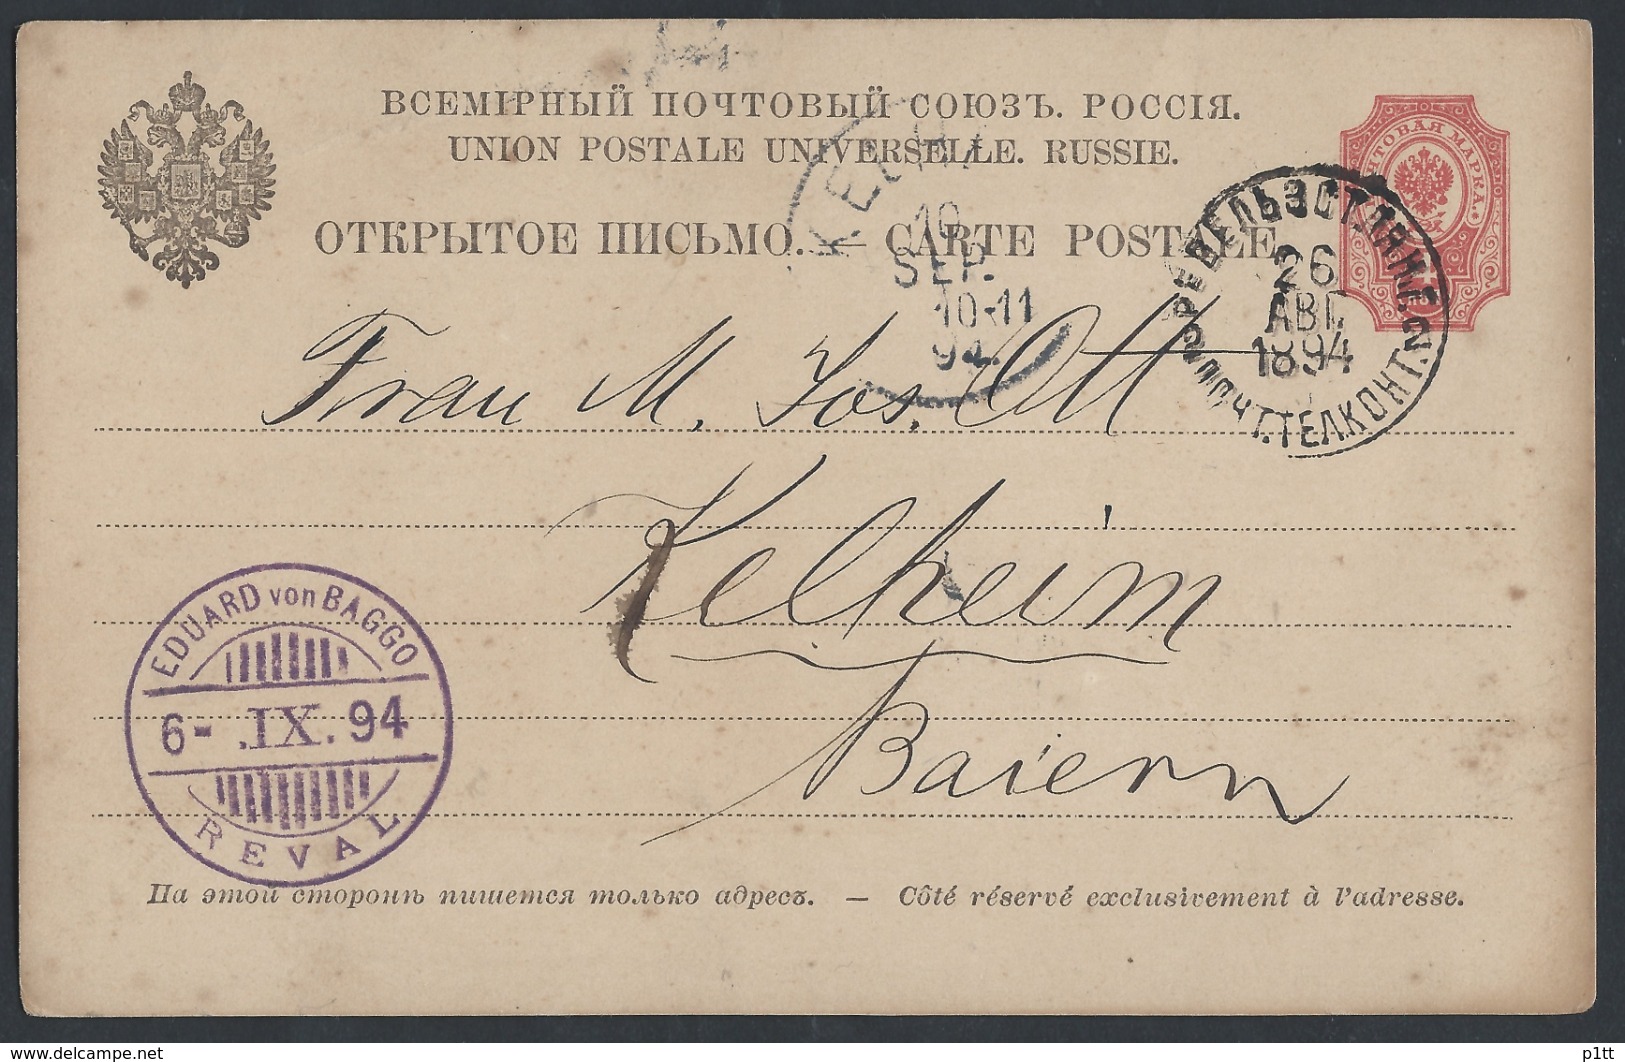 ВСЕМІРНЫЙ ПОЧТОВЫЙ СОЮЗЪ. РОССІЯ.
UNION POSTALE UNIVERSELLE. RUSSIE.
ОТКРЫТОЕ ПИСЬМО. — CARTE POSTALE
ПОЧТОВАЯ МАРКА
РЕВЕЛЬ ЭСТЛЯНД.
26
АВГ.
1894
ПОЧТ.ТЕЛ.КОНТ.
10
SEP.
10-11
94.
Frau M. Jos. Ott
Kelheim
Baiern
EDUARD von BAGGO
6- .IX. 94
REVAL
На этой сторонѣ пишется только адресъ. — Côté réservé exclusivement à l'adresse.
www.delcampe.net
p1tt